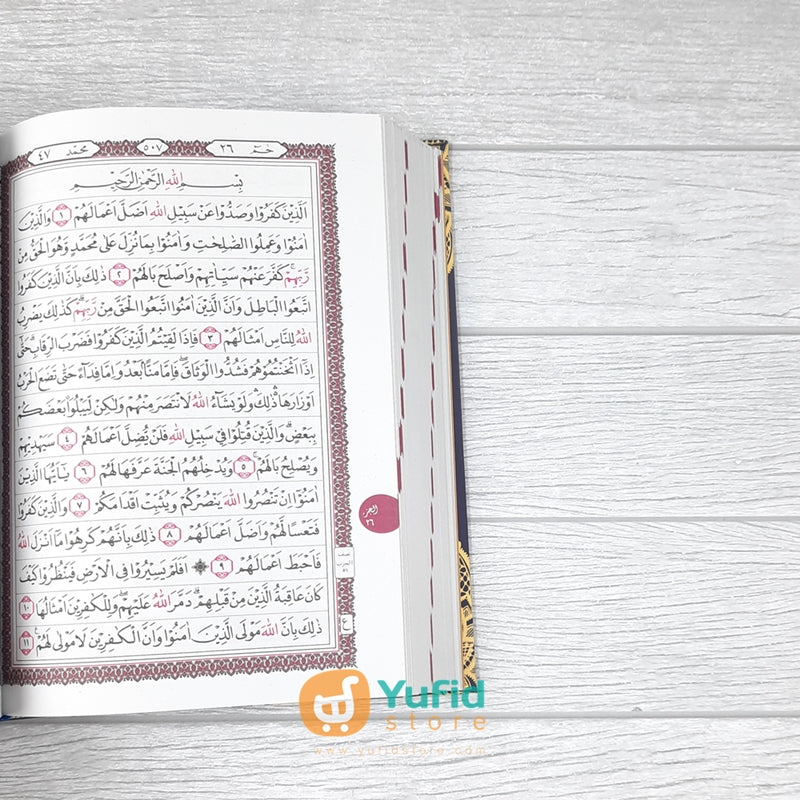 حٰمٓ ٢٦
٥٠٧
محمّد ٤٧
بِسْمِ اللهِ الرَّحْمٰنِ الرَّحِيْمِ
اَلَّذِيْنَ كَفَرُوْا وَصَدُّوْا عَنْ سَبِيْلِ اللهِ اَضَلَّ اَعْمَالَهُمْ ١ وَالَّذِيْنَ
اٰمَنُوْا وَعَمِلُوا الصّٰلِحٰتِ وَاٰمَنُوْا بِمَا نُزِّلَ عَلٰى مُحَمَّدٍ وَّهُوَ الْحَقُّ مِنْ
رَّبِّهِمْۙ كَفَّرَ عَنْهُمْ سَيِّاٰتِهِمْ وَاَصْلَحَ بَالَهُمْ ٢ ذٰلِكَ بِاَنَّ الَّذِيْنَ كَفَرُوا
اتَّبَعُوا الْبَاطِلَ وَاَنَّ الَّذِيْنَ اٰمَنُوا اتَّبَعُوا الْحَقَّ مِنْ رَّبِّهِمْۗ كَذٰلِكَ يَضْرِبُ
اللهُ لِلنَّاسِ اَمْثَالَهُمْ ٣ فَاِذَا لَقِيْتُمُ الَّذِيْنَ كَفَرُوْا فَضَرْبَ الرِّقَابِۗ حَتّٰٓى
اِذَآ اَثْخَنْتُمُوْهُمْ فَشُدُّوا الْوَثَاقَۖ فَاِمَّا مَنًّاۢ بَعْدُ وَاِمَّا فِدَاۤءً حَتّٰى تَضَعَ الْحَرْبُ
اَوْزَارَهَاۛ ذٰلِكَۛ وَلَوْ يَشَاۤءُ اللهُ لَانْتَصَرَ مِنْهُمْ وَلٰكِنْ لِّيَبْلُوَا۟ بَعْضَكُمْ
بِبَعْضٍۗ وَالَّذِيْنَ قُتِلُوْا فِيْ سَبِيْلِ اللهِ فَلَنْ يُّضِلَّ اَعْمَالَهُمْ ٤ سَيَهْدِيْهِمْ
وَيُصْلِحُ بَالَهُمْۚ ٥ وَيُدْخِلُهُمُ الْجَنَّةَ عَرَّفَهَا لَهُمْ ٦ يٰٓاَيُّهَا الَّذِيْنَ
اٰمَنُوْٓا اِنْ تَنْصُرُوا اللهَ يَنْصُرْكُمْ وَيُثَبِّتْ اَقْدَامَكُمْ ٧ وَالَّذِيْنَ كَفَرُوْا
فَتَعْسًا لَّهُمْ وَاَضَلَّ اَعْمَالَهُمْ ٨ ذٰلِكَ بِاَنَّهُمْ كَرِهُوْا مَآ اَنْزَلَ اللهُ
فَاَحْبَطَ اَعْمَالَهُمْ ٩ ۞ اَفَلَمْ يَسِيْرُوْا فِى الْاَرْضِ فَيَنْظُرُوْا كَيْفَ
كَانَ عَاقِبَةُ الَّذِيْنَ مِنْ قَبْلِهِمْۗ دَمَّرَ اللهُ عَلَيْهِمْۖ وَلِلْكٰفِرِيْنَ اَمْثَالُهَا ١٠
ذٰلِكَ بِاَنَّ اللهَ مَوْلَى الَّذِيْنَ اٰمَنُوْا وَاَنَّ الْكٰفِرِيْنَ لَا مَوْلٰى لَهُمْ ١١
الجزء
٢٦
نصف
الحزب
٥١
ع
Yufid
store
www.yufidstore.com